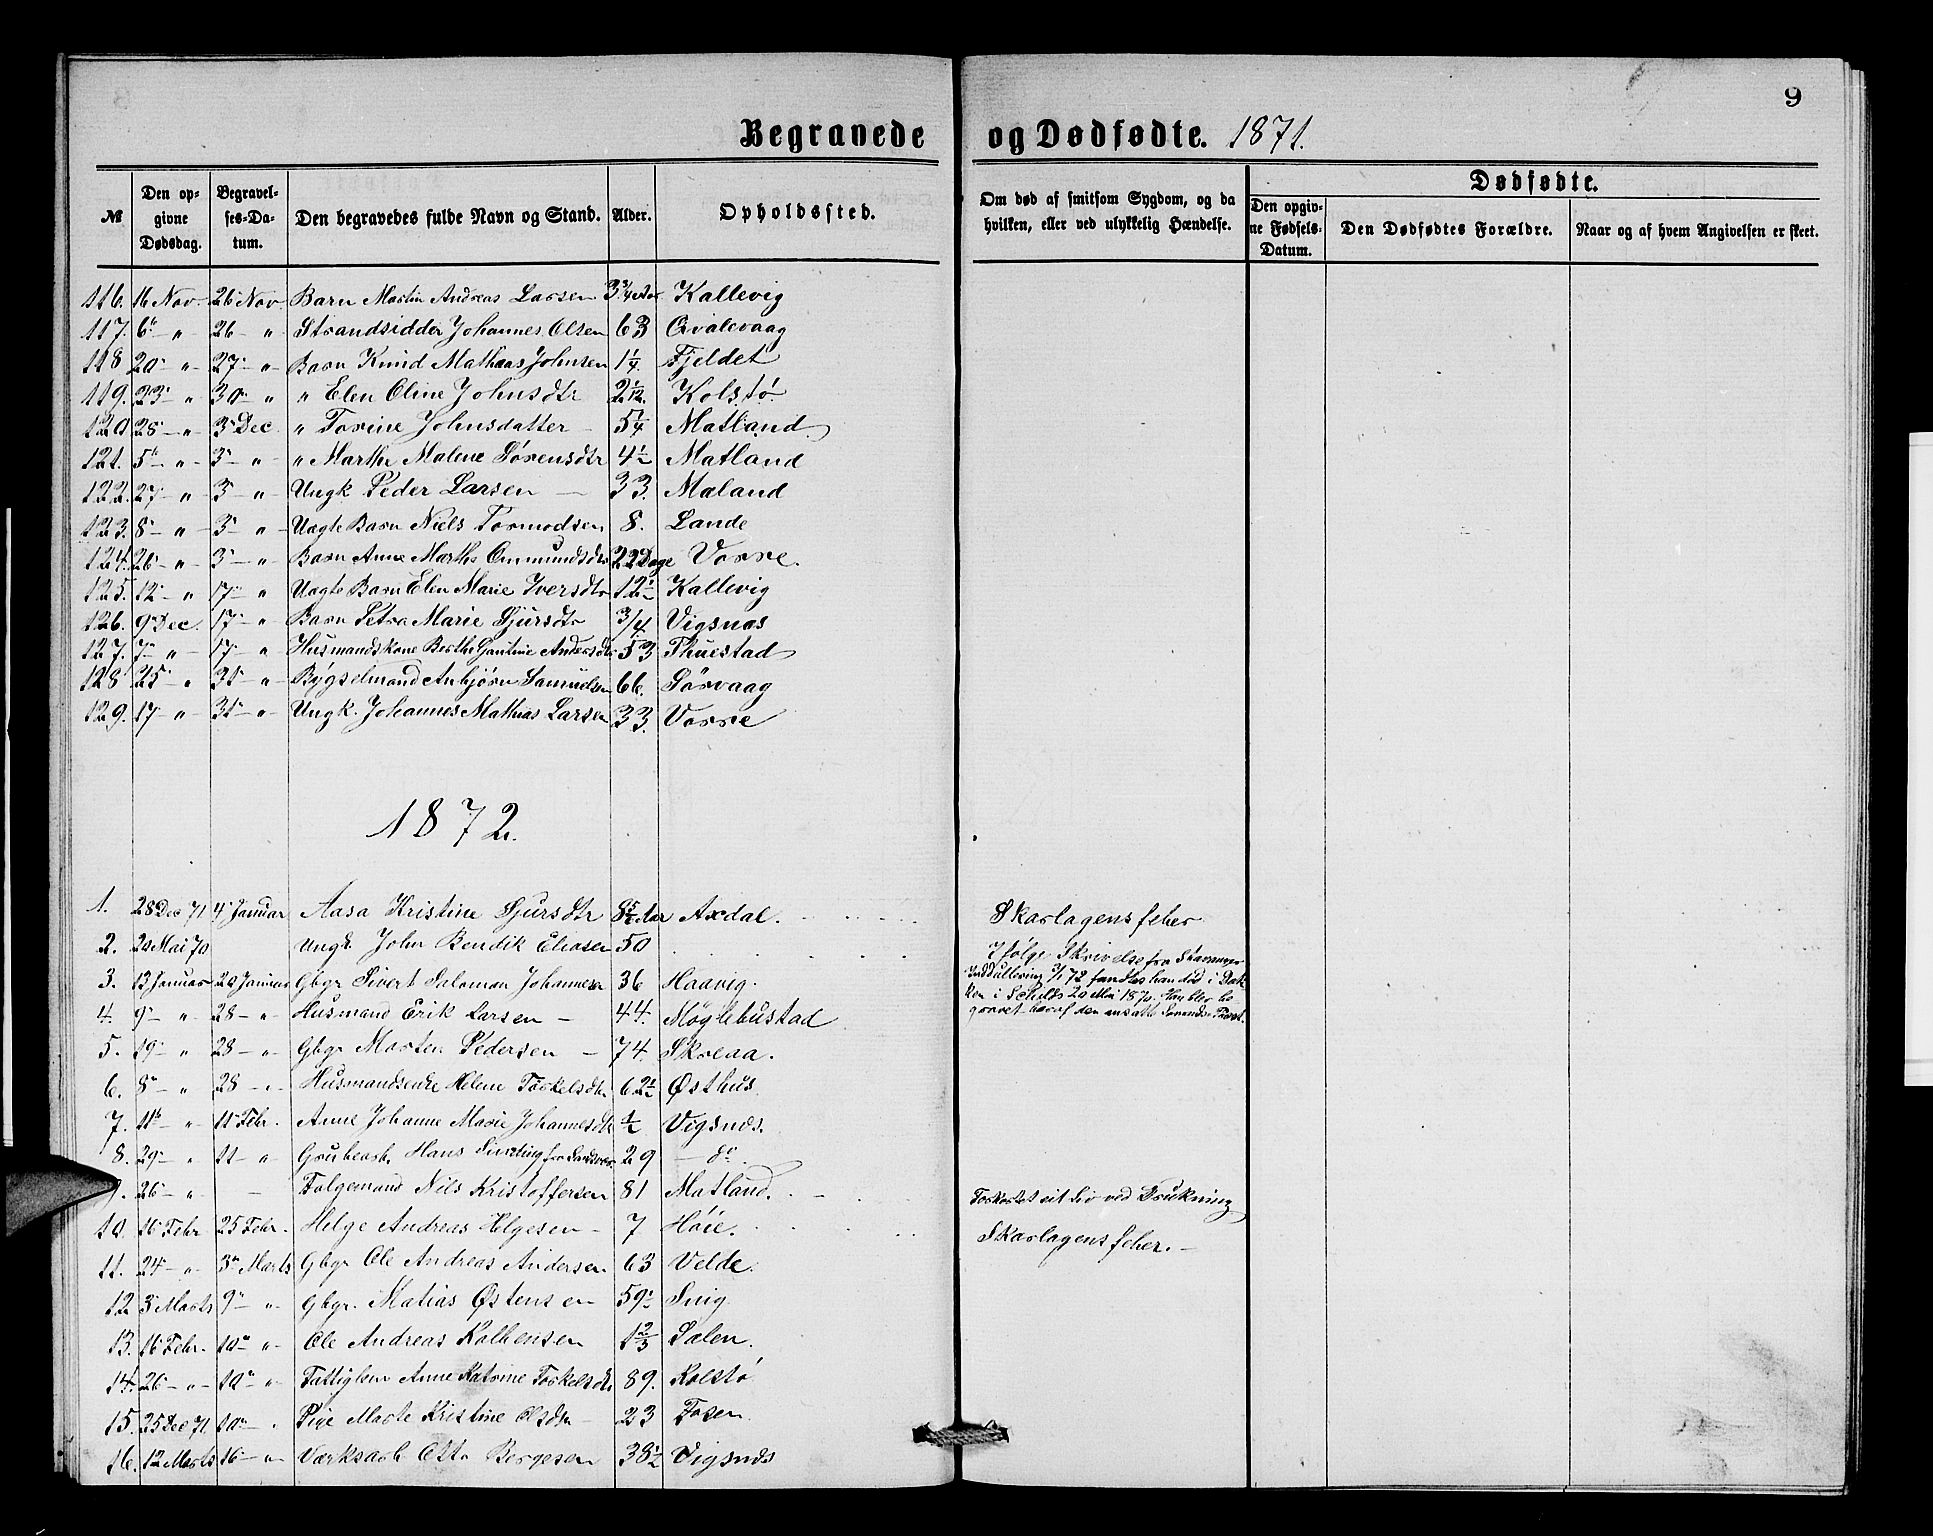 9
Begravede og Dødfødte. 1871.
№ Den opgivne Dødsdag. Begravelses-Datum. Den begravedes fulde Navn og Stand. Alder. Opholdssted. Om død af smitsom Sygdom, og da hvilken, eller ved ulykkelig Hændelse. Dødfødte. Den opgivne Fødsels-Datum. Den Dødfødtes Forældre. Naar og af hvem Angivelsen er skeet.
116. 16 Nov. 26 Nov Barn Martin Andreas Larsen 3 3/4 Kallevig
117. 6 " 26 " Strandsidder Johannes Olsen 63 Qvalevaag
118 20 " 27 " Barn Knud Mathias Johnsen 1 1/4 Fjeldet
119. 23 " 30 " " Elen Oline Johnsdtr 2 1/12. Kolstø
120 28 " 3 Dec " Torine Johnsdatter 5 1/4 Matland
121. 5 " 3 " " Marthe Malene Sørensdtr 4 1/2 Matland
122. 27 " 3 " Ungk Peder Larsen 33. Mæland
123. 8 " 3 " Uægte Barn Niels Tormodsen 8. Lande
124. 26 " 3 " Barn Anne Marthe Ommundsdtr 22 Dage Vorre.
125. 12 " 17 " Uægte Barn Elen Marie Iversdtr 12 1/2 Kallevig
126. 9 Dec. 17 " Barn Petra Marie Sjursdtr 3/4 Vigsnæs
127. 7 " 17 " Husmandskone Berthe Gurine Andersdtr 53 Thuestad
128 25 " 31 " Bygselmand Anbjørn Samuelsen 66. Sørvaag
129. 17 " 31 " Ungk. Johannes Mathias Larsen 33. Vorre
1872.
1. 28 Dec 71 4 Januar Aasa Kristine Sjursdtr 8 5/12 Aar Axdal. Skarlagensfeber
2. 20 Mai 70 Ungk. John Bendik Eliasen 50 Ifølge Skrivelse fra Stavanger
3. 13 Januar 20 Januar Gbgr Sivert Salomon Johannesen 36 Haavig. Inddullering 3/1 72 fandtes han død i Dæk-
4. 9 " 28 " Husmand Erik Larsen 44. Møglebustad ken i Schilds 20 Mai 1870. Han blev be-
gravet heraf den ansatte
5. 19 " 28 " Gbgr Morten Pedersen 74. Skreaa.
6. 8 " 28 " Husmandsenke Helene Torkelsdtr 62 1/2 Østhus.
7. 11 " 11 Febr. Anne Johanne Marie Johannesdtr 1/2 Vigsnæs.
8. 29 " 11 " Grubearb. Hans Sinding fra Sandsvær 29 do.
9. 26 " Følgemand Nils Kristoffersen 81 Matland. Forkortet sit Liv ved Drukning
10. 16 Febr 25 Febr. Helge Andreas Helgesen 7 Høie. Skarlagensfeber.
11. 24 " 3 Marts Gbgr Ole Andreas Andersen 63 Velde.
12 3 Marts 9 " Gbgr. Matias Østensen 59 1/2 Snig
13. 16 Febr. 10 " Ole Andreas Kolbensen 1 2/3 Salen.
14. 26 " 10 " Fattiglem Anne Katrine Torkelsdtr 89. Kolstø
15. 25 Dec 71 10 " Pige Marte Kristine Olsdtr 23 Fosen
16. 12 Marts 16 " Værksarb Otto Bergesen 38 1/2 Vigsnæs